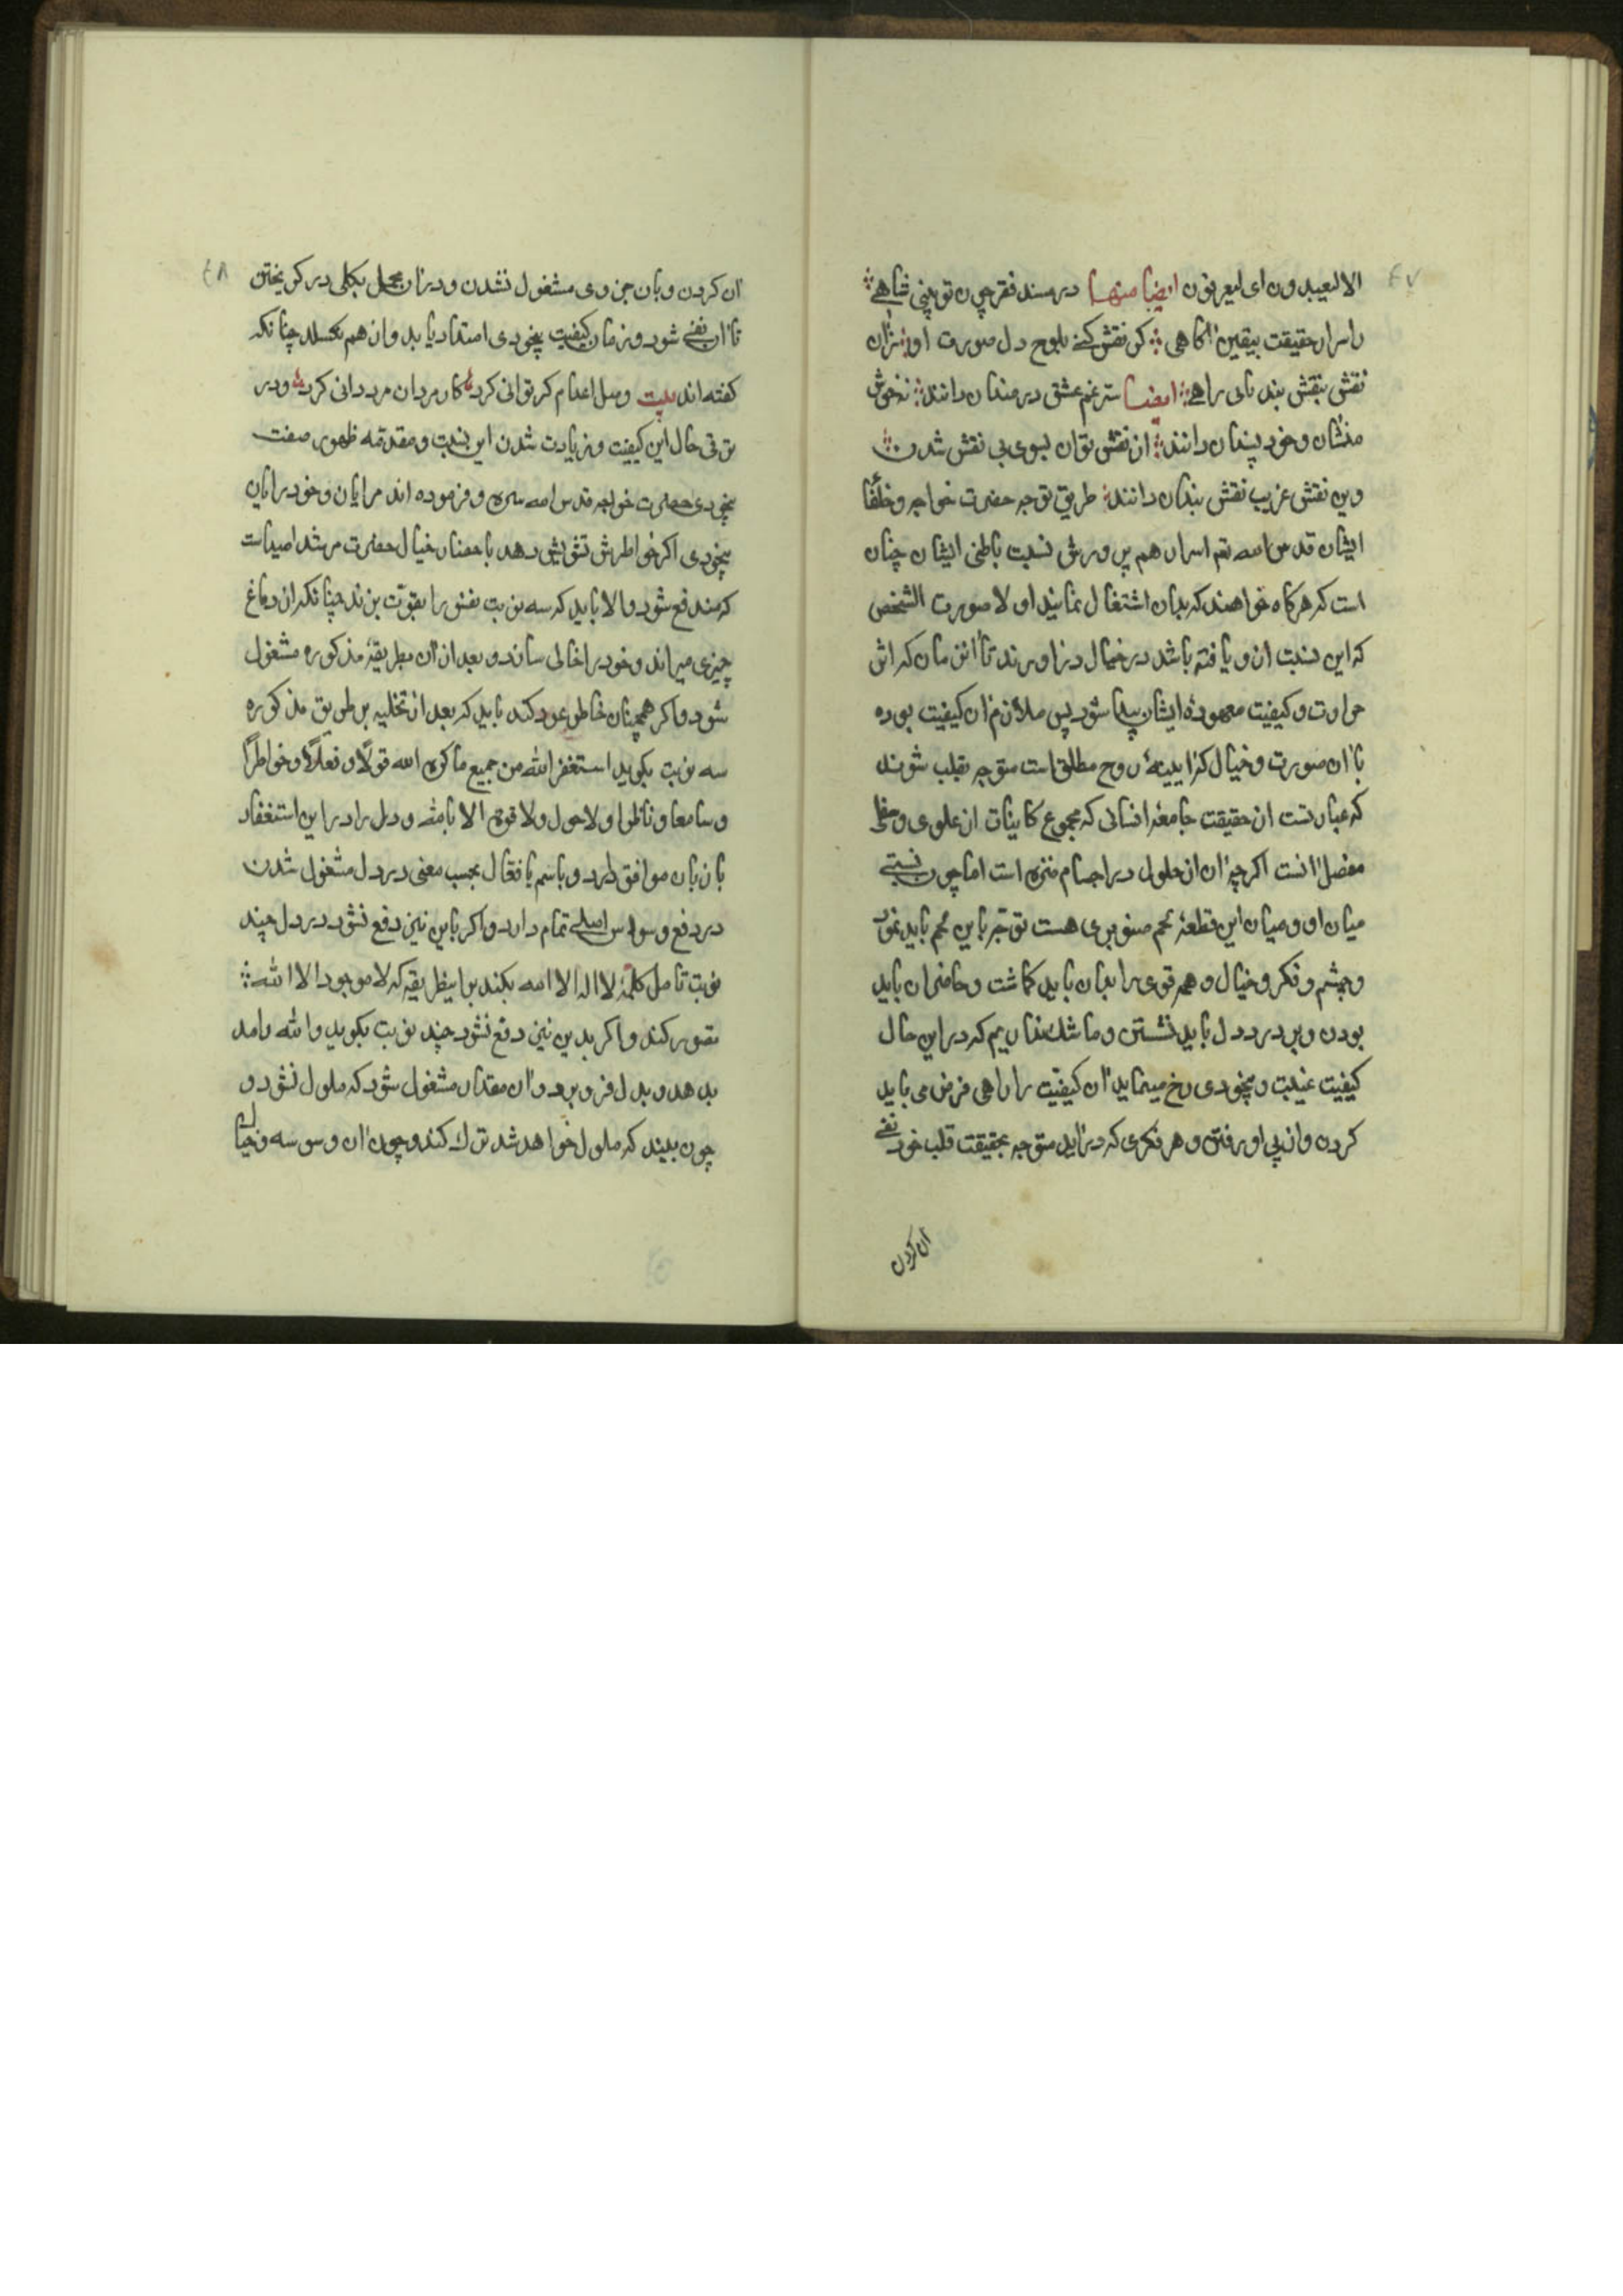 ٤٧
الا لیعبدون ای لیعرفون ایضا منها در مسند فقر چون تو بینی شاهے
ز اسرار حقیقت بیقین آکاهی کر نقش کنے بلوح دل صورت او زان
نقش بنقش بند یابی راهے ایضا سر غم عشق دردمندان دانند نه خوش
منشان و خود پسندان دانند از نقش توان بسوی بی نقش شدن
وین نقش غریب نقش بندان دانند طریق توجه حضرت خواجه و خلفا
ایشان قدس الله تع اسرارهم پرورش نسبت باطنی ایشان چنان
است که هرکاه خواهند که بدان اشتغال نمایند اولا صورت الشخص
که این نسبت ازو یافته باشد در خیال درآورند تا آن زمان که اثر
حرارت و کیفیت معهودۀ ایشان پیدا شود پس ملازم آن کیفیت بوده
با آن صورت و خیال که آیینۀ روح مطلق است متوجه بقلب شوند
که عبارتست از حقیقت جامعۀ انسانی که مجموع کاینات از علوی و سفلی
مفصل آنست اکرچه آن از حلول در اجسام منزه است اما چون نسبتے
میان او و میان این قطعۀ لحم صنوبری هست توجه باین لحم باید نمود
و چشم و فکر و خیال و همه قوی را بدان باید کماشت و حاضر آن باید
بودن و بر در دل باید نشستن و ما شک نداریم که در این حال
کیفیت غیبت و بیخودی رخ مینماید آن کیفیت را راهی فرض می باید
کردن و از پی او رفتن و هر فکری که درآید متوجه بحقیقت قلب خود نفے
آن کردن
٤٨
آن کردن و بآن جزوی مشغول نشدن و در آن مجمل بکلی در کریختن
تا آن نفے شود و زمان کیفیت بیخودی امتداد یابد و از هم نکسلد چنانکه
کفته اند بیت وصل اعدام کر توانی کرد کار مردان مرد دانی کرد و در
ترقی حال این کیفیت و زیادت شدن این نسبت و مقدمه ظهور صفت
بیخودی حضرت خواجه قدس الله سره و فرموده اند مرا یان و خود را یان
بیخودی اکر خواطرش تشویش دهد باحضار خیال حضرت مرشد امیداست
که مندفع شود والا باید که سه نوبت نفس را بقوت بزند چنانکه از دماغ
چیزی میراند و خود را خالی سازد و بعد از آن بطریقۀ مذکوره مشغول
شود و اکر همچنان خاطر عود کند باید که بعد از تخلیه بر طریق مذکوره
سه نوبت بکوید استغفر الله من جمیع ما کره الله قولاً و فعلاً و خواطراً
و سامعا و ناظرا و لاحول و لا قوة الا بالله و دل را در این استغفار
با زبان موافق دارد و باسم یا فعال بحسب معنی در دل مشغول شدن
در دفع وسواس اصلے تمام دارد و اکر باین نیز دفع نشود در دل چند
نوبت تامل کلمۀ لا اله الا الله بکند بر اینطریقه که لا موجود الا الله
تصور کند و اکر بدین نیز دفع نشود چند نوبت بکوید والله را مد
بدهد و بدل فرو برد و آن مقدار مشغول شود که ملول نشود و
چون بیند که ملول خواهد شد ترک کند و چون آن وسوسه و خیال